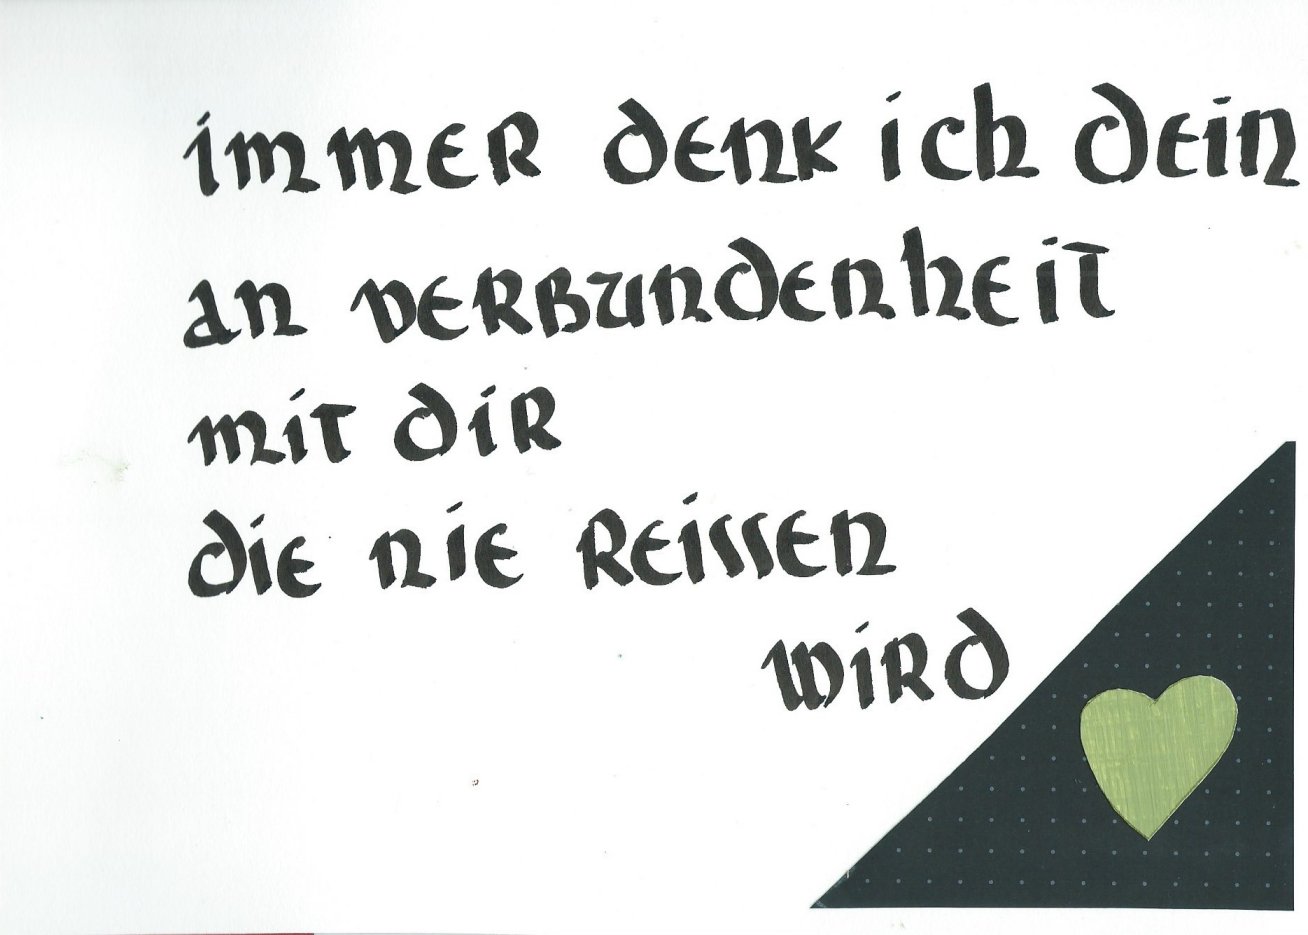 immer denk ich dein
an verbundenheit
mit dir
die nie reissen
wird